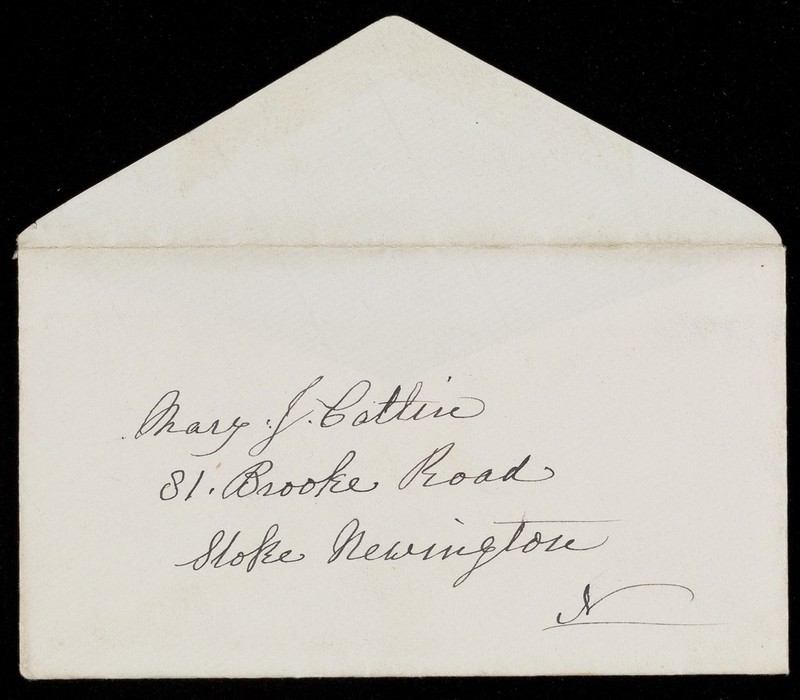 Mary J. Cattin
81. Brooke Road
Stoke Newington
N